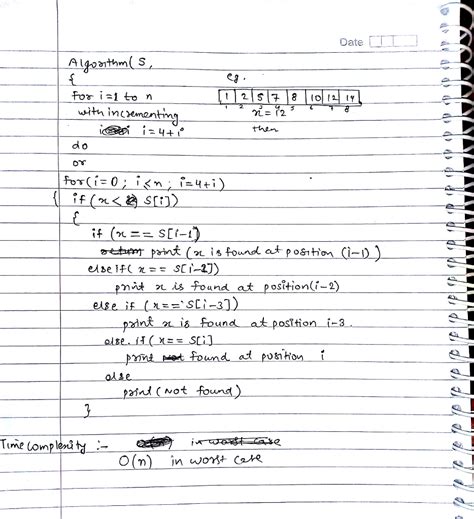 Date
Algorithm( S,
{
eg.
For i=1 to n
1 2 5 7 8 10 12 14
with incrementing
x=12
1 2 3 4 5 6 7 8
i=4+i
then
do
or
for(i=0 ; i<n ; i=4+i)
{ if (x < S[i])
{
if (x == S[i-1)
print (x is found at position (i-1))
else if( x == S[i-2])
print x is found at position(i-2)
else if (x == S[i-3])
print x is found at position i-3.
else. if( x == S[i]
print found at position i
else
print( Not found)
}
Time complexity :-
in worst case
O(n) in worst case